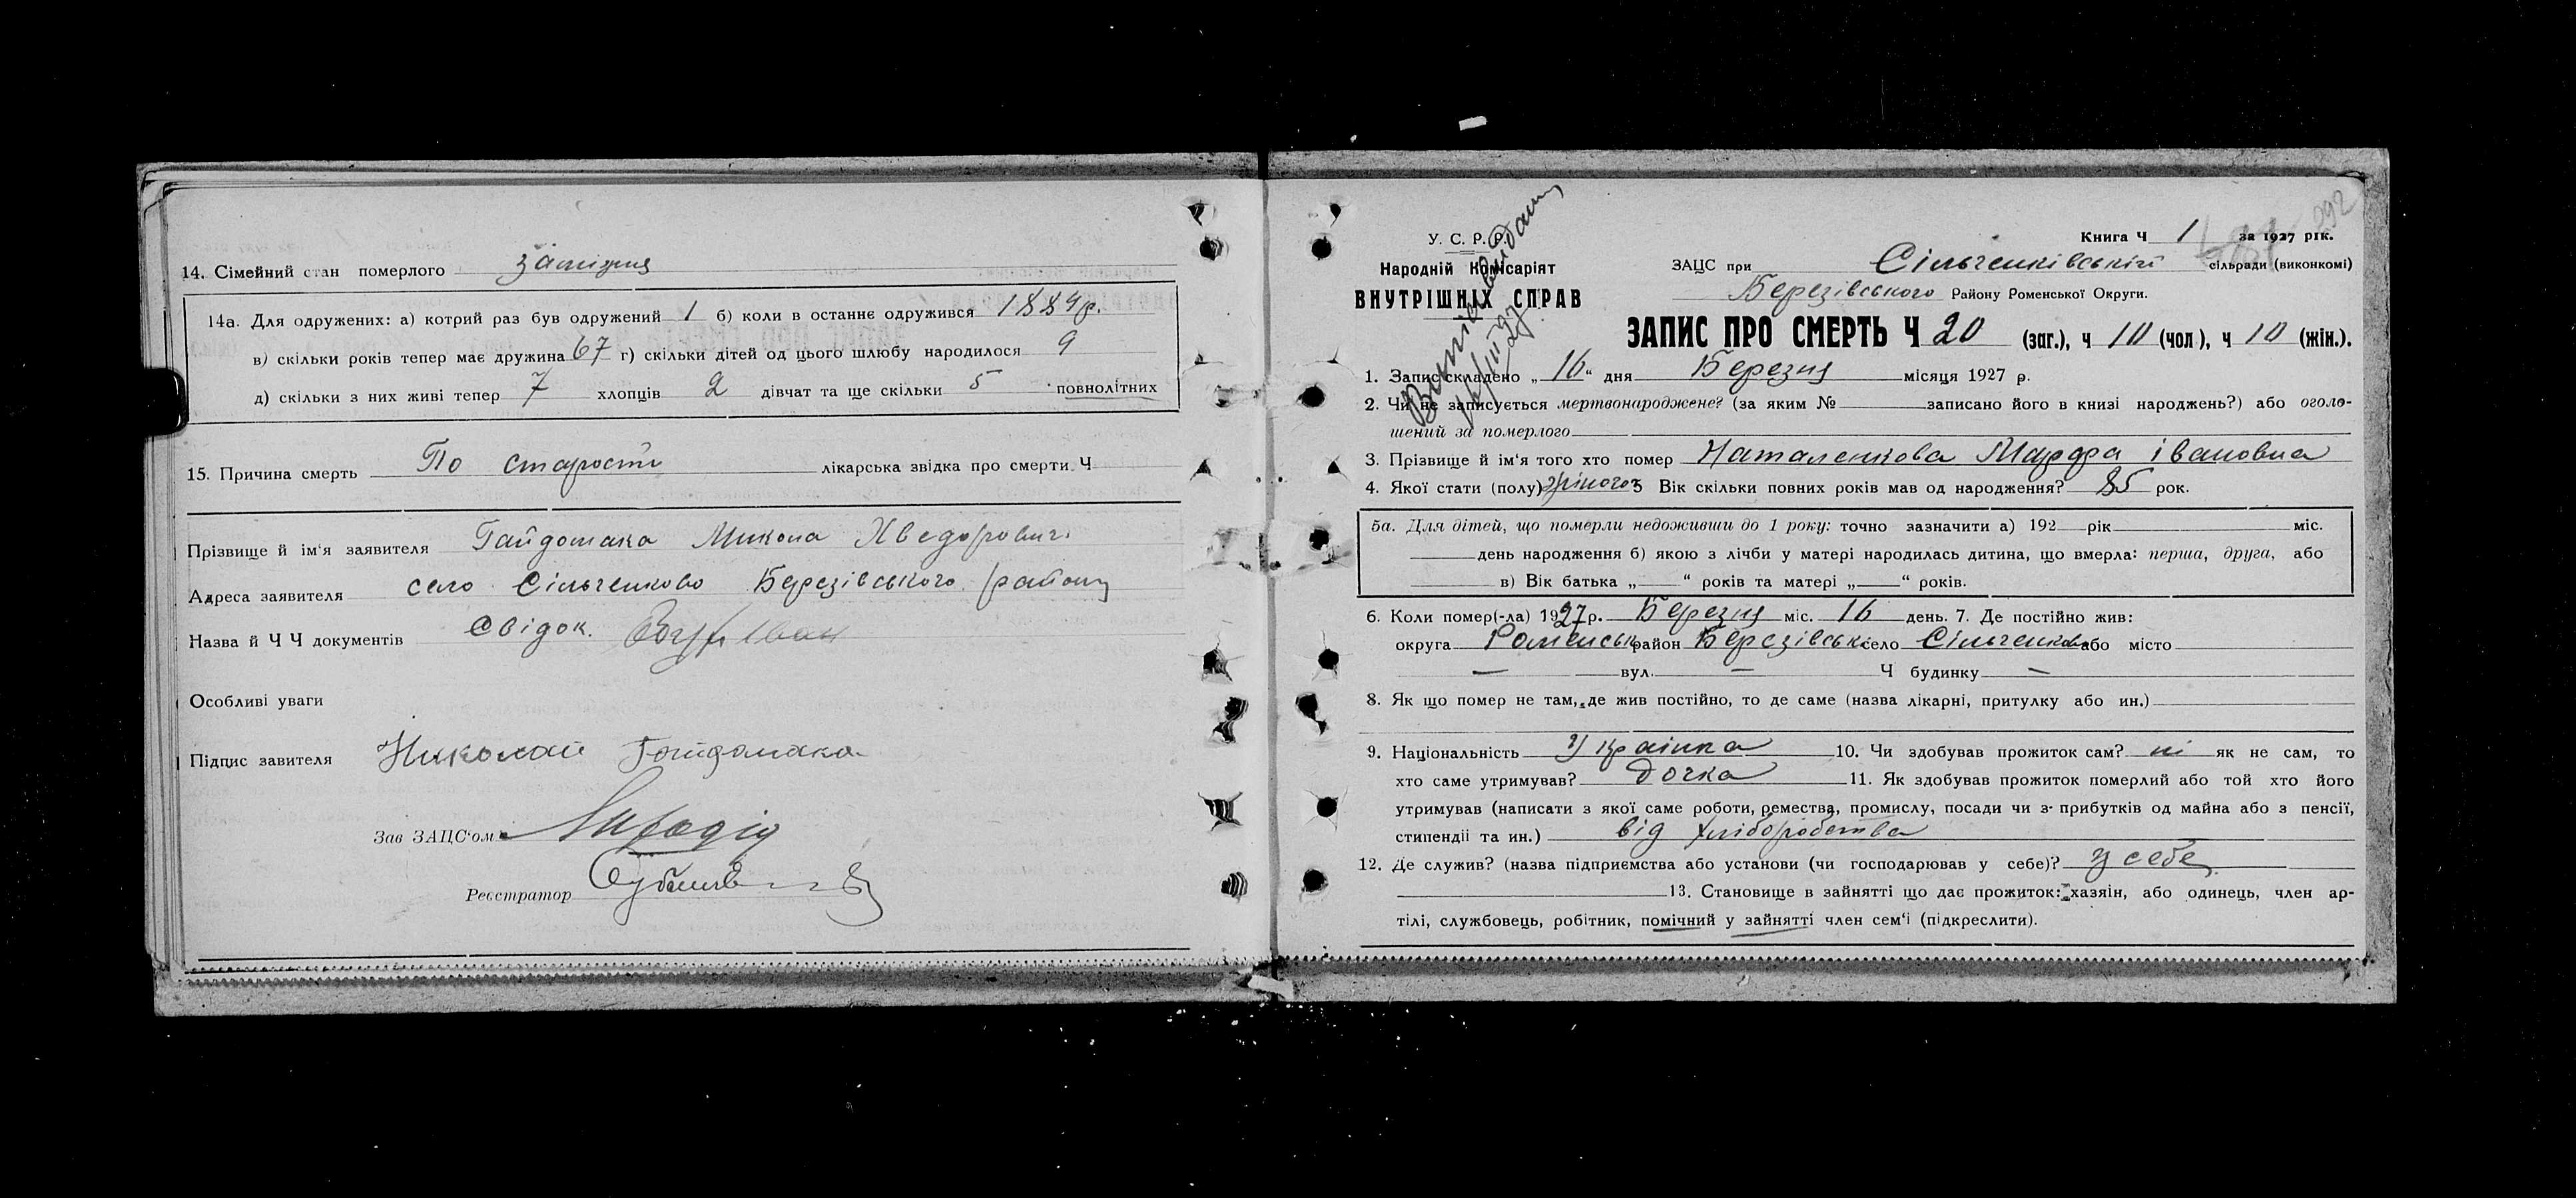 14. Сімейний стан померлого заміжня
14а. Для одружених: а) котрий раз був одружений 1 б) коли в останнє одружився 1884р.
в) скільки років тепер має дружина 67 г) скільки дітей од цього шлюбу народилося 9
д) скільки з них живі тепер 7 хлопців 2 дівчат та ще скільки 5 повнолітних
15. Причина смерть По старости лікарська звідка про смерти Ч
Прізвище й ім'я заявителя Гайдомака Микола Хведорович
Адреса заявителя село Сільченково Березівського району
Назва й Ч Ч документів Свідок. Іван
Особливі уваги
Підпис завителя Николай Гайдамака
Зав ЗАЦС'ом
Реєстратор
У. С. Р. Р.
Народній Комісаріят
ВНУТРІШНІХ СПРАВ
292
Книга Ч 1 за 1927 рік.
ЗАЦС при Сільченківській сільради (виконкомі)
Березівського Району Роменської Округи.
ЗАПИС ПРО СМЕРТЬ Ч 20 (заг.), ч 10 (чол), ч 10 (жін.).
1. Запис складено „16“ дня Березня місяця 1927 р.
2. Чи не записується мертвонароджене? (за яким № записано його в книзі народжень?) або оголо-
шений за померлого
3. Прізвище й ім'я того хто помер Наталенкова Марфа Івановна
4. Якої стати (полу) жіночої 5 Вік скільки повних років мав од народження? 85 рок.
5а. Для дітей, що померли недоживши до 1 року: точно зазначити а) 192 рік міс.
день народження б) якою з лічби у матері народилась дитина, що вмерла: перша, друга, або
в) Вік батька „ “ років та матері „ “ років.
6. Коли помер(-ла) 1927р. Березня міс. 16 день. 7. Де постійно жив:
округа Роменськ район Березівськ село Сільченково або місто
— вул. — Ч будинку —
8. Як що помер не там, де жив постійно, то де саме (назва лікарні, притулку або ин.)
9. Національність Українка 10. Чи здобував прожиток сам? ні як не сам, то
хто саме утримував? дочка 11. Як здобував прожиток померлий або той хто його
утримував (написати з якої саме роботи, ремества, промислу, посади чи з прибутків од майна або з пенсії,
стипендії та ин.) від хліборобства
12. Де служив? (назва підприємства або установи (чи господарював у себе)? у себе
13. Становище в зайнятті що дає прожиток: хазяін, або одинець, член ар-
тілі, службовець, робітник, помічний у зайнятті член сем'ї (підкреслити).